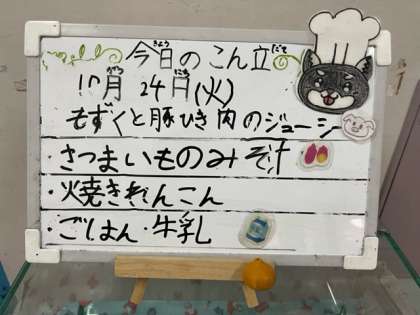 今日のこん立
きょう だて
10月24日(火)
がつ にち
もずくと豚ひき肉のジューシー
・さつまいものみそ汁
・焼きれんこん
・ごはん・牛乳